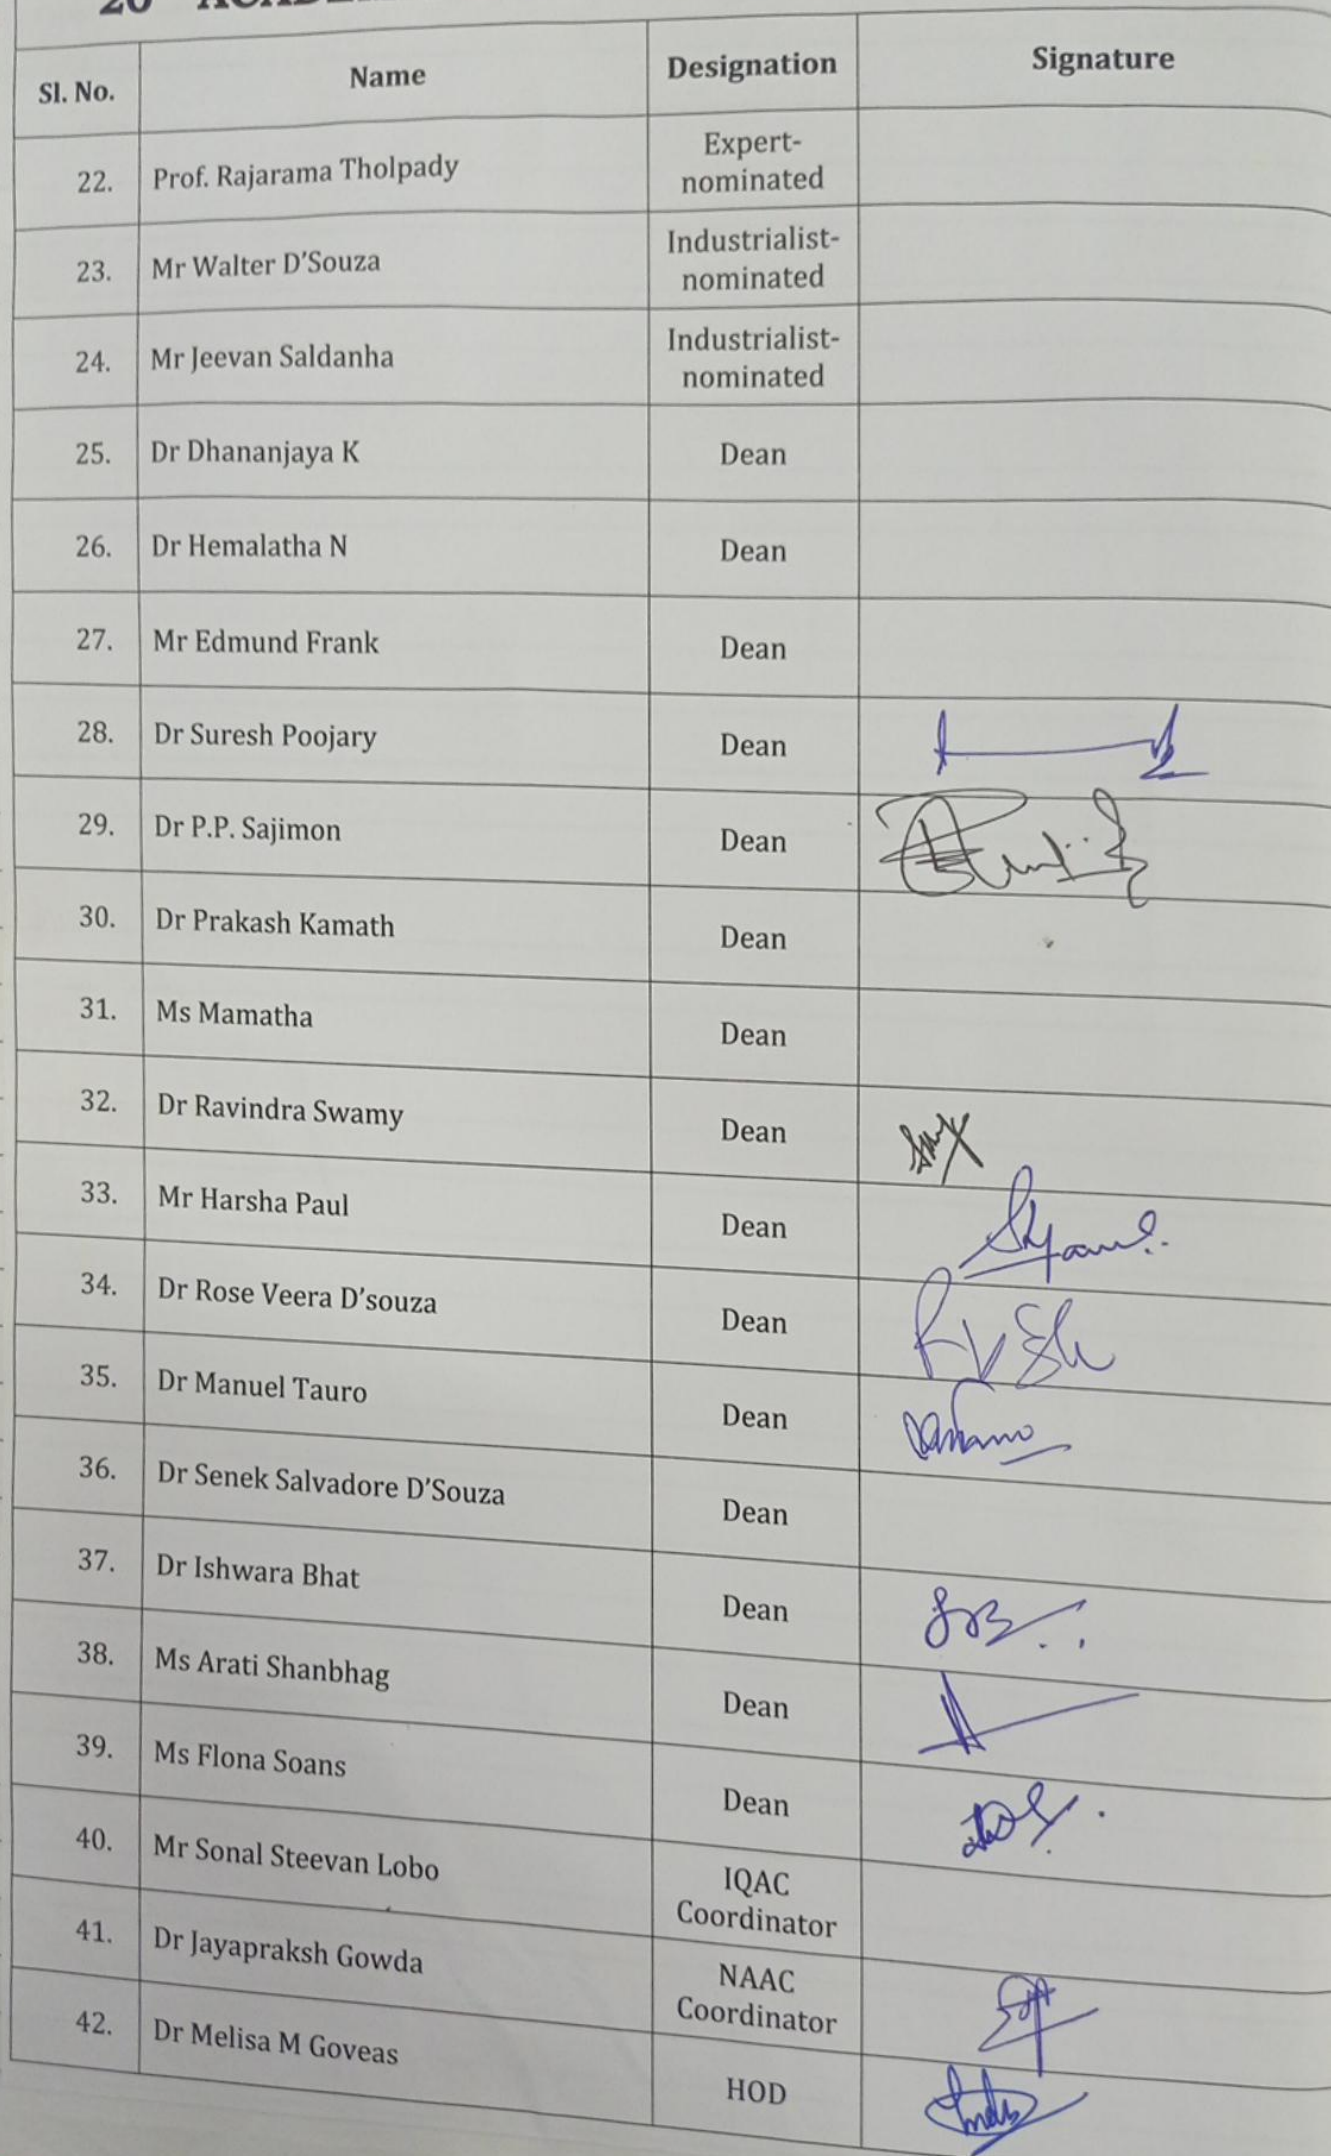 Sl. No. Name Designation Signature
22. Prof. Rajarama Tholpady Expert-
nominated
23. Mr Walter D'Souza Industrialist-
nominated
24. Mr Jeevan Saldanha Industrialist-
nominated
25. Dr Dhananjaya K Dean
26. Dr Hemalatha N Dean
27. Mr Edmund Frank Dean
28. Dr Suresh Poojary Dean
29. Dr P.P. Sajimon Dean
30. Dr Prakash Kamath Dean
31. Ms Mamatha Dean
32. Dr Ravindra Swamy Dean
33. Mr Harsha Paul Dean
34. Dr Rose Veera D'souza Dean
35. Dr Manuel Tauro Dean
36. Dr Senek Salvadore D'Souza Dean
37. Dr Ishwara Bhat Dean
38. Ms Arati Shanbhag Dean
39. Ms Flona Soans Dean
40. Mr Sonal Steevan Lobo IQAC
Coordinator
41. Dr Jayapraksh Gowda NAAC
Coordinator
42. Dr Melisa M Goveas HOD